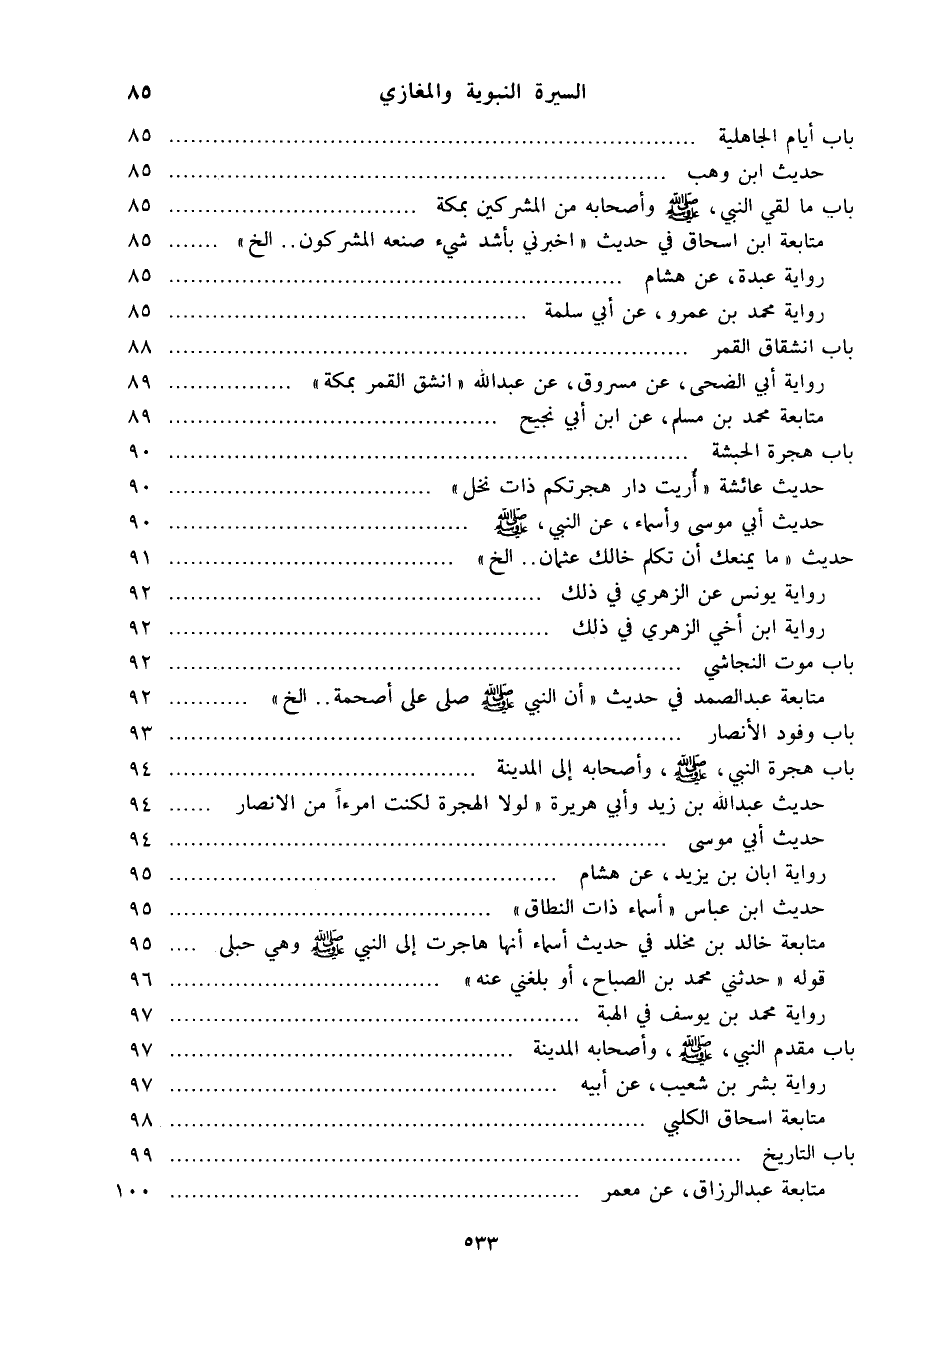 السيرة النبوية والمغازي ٨٥
باب أيام الجاهلية .......... ٨٥
حديث ابن وهب .......... ٨٥
باب ما لقي النبي، ﷺ وأصحابه من المشركين بمكة .......... ٨٥
متابعة ابن اسحاق في حديث « اخبرني بأشد شيء صنعه المشركون.. الخ» ....... ٨٥
رواية عبدة، عن هشام .......... ٨٥
رواية محمد بن عمرو، عن أبي سلمة .......... ٨٥
باب انشقاق القمر .......... ٨٨
رواية أبي الضحى، عن مسروق، عن عبدالله « انشق القمر بمكة» .......... ٨٩
متابعة محمد بن مسلم، عن ابن أبي نجيح .......... ٨٩
باب هجرة الحبشة .......... ٩٠
حديث عائشة « أُريت دار هجرتكم ذات نخل» .......... ٩٠
حديث أبي موسى وأسماء، عن النبي، ﷺ .......... ٩٠
حديث « ما يمنعك أن تكلم خالك عثمان.. الخ» .......... ٩١
رواية يونس عن الزهري في ذلك .......... ٩٢
رواية ابن أخي الزهري في ذلك .......... ٩٢
باب موت النجاشي .......... ٩٢
متابعة عبدالصمد في حديث « أن النبي ﷺ صلى على أصحمة.. الخ» .......... ٩٢
باب وفود الأنصار .......... ٩٣
باب هجرة النبي، ﷺ، وأصحابه إلى المدينة .......... ٩٤
حديث عبدالله بن زيد وأبي هريرة « لولا الهجرة لكنت امرءاً من الانصار ...... ٩٤
حديث أبي موسى .......... ٩٤
رواية ابان بن يزيد، عن هشام .......... ٩٥
حديث ابن عباس « أسماء ذات النطاق» .......... ٩٥
متابعة خالد بن مخلد في حديث أسماء أنها هاجرت إلى النبي ﷺ وهي حبلى .... ٩٥
قوله « حدثني محمد بن الصباح، أو بلغني عنه» .......... ٩٦
رواية محمد بن يوسف في الهبة .......... ٩٧
باب مقدم النبي، ﷺ، وأصحابه المدينة .......... ٩٧
رواية بشر بن شعيب، عن أبيه .......... ٩٧
متابعة اسحاق الكلبي .......... ٩٨
باب التاريخ .......... ٩٩
متابعة عبدالرزاق، عن معمر .......... ١٠٠
٥٣٣